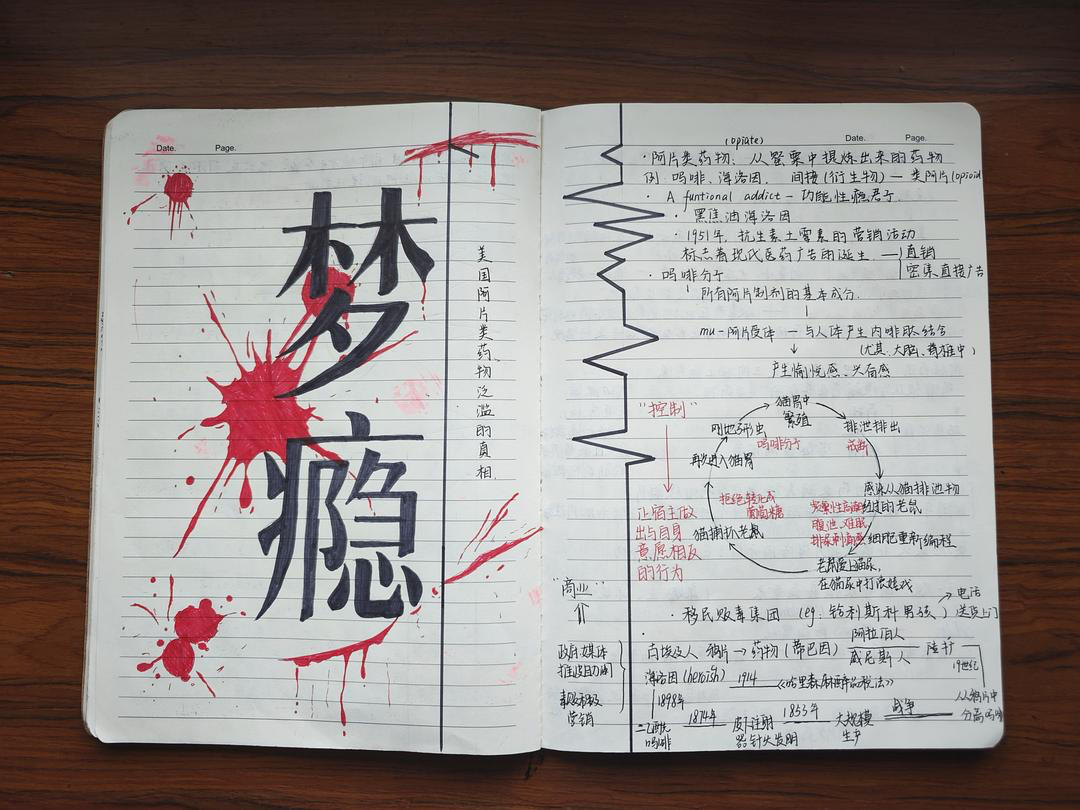 Date.
Page.
梦
瘾
美国阿片类药物泛滥的真相
(opiate)
Date.
Page.
·阿片类药物:从罂粟中提炼出来的药物
例:吗啡、海洛因. 间接(衍生物)—类阿片(opioid
· A funtional addict — 功能性瘾君子.
黑焦油海洛因
· 1951年,抗生素土霉素的营销活动
标志着现代医药广告的诞生 —
直销
密集直接广告
· 吗啡分子
所有阿片制剂的基本成分.
mu-阿片受体 — 与人体产生内啡肽结合
(尤其.大脑、脊椎中)
↓
产生愉悦感、兴奋感
"控制"
猫胃中
繁殖
排泄排出
刚地弓形虫
吗啡分子
戒断
再次进入猫胃
感染从猫排泄物
经过的老鼠
拒绝转化成
葡萄糖
腹泄、难眠
猫捕抓老鼠
细胞重新编程
老鼠爱上猫尿,
在猫尿中打滚嬉戏
让宿主做
出与自身
意愿相反
的行为
"商业"
⇑
· 移民贩毒集团 (eg: 哈利斯科男孩)
电话
送货上门
政府、媒体
推波助澜
积极
营销
古埃及人 鸦片→药物(蒂巴因)
阿拉伯人
威尼斯人
19世纪
从鸦片中
分离吗啡
海洛因(heroish) 1914 《哈里森麻醉品税法》
1898年
二乙酰
吗啡
1874年
皮下注射
器针头发明
1853年
大规模
生产
战争